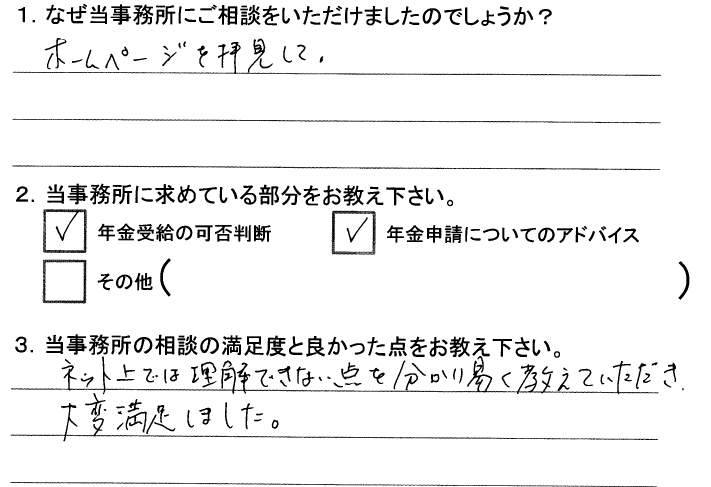 1. なぜ当事務所にご相談をいただけましたのでしょうか？
ホームページを拝見して.
2. 当事務所に求めている部分をお教え下さい。
✓ 年金受給の可否判断 ✓ 年金申請についてのアドバイス
その他( )
3. 当事務所の相談の満足度と良かった点をお教え下さい。
ネット上では理解できない点を分かり易く教えていただき.
大変満足しました。